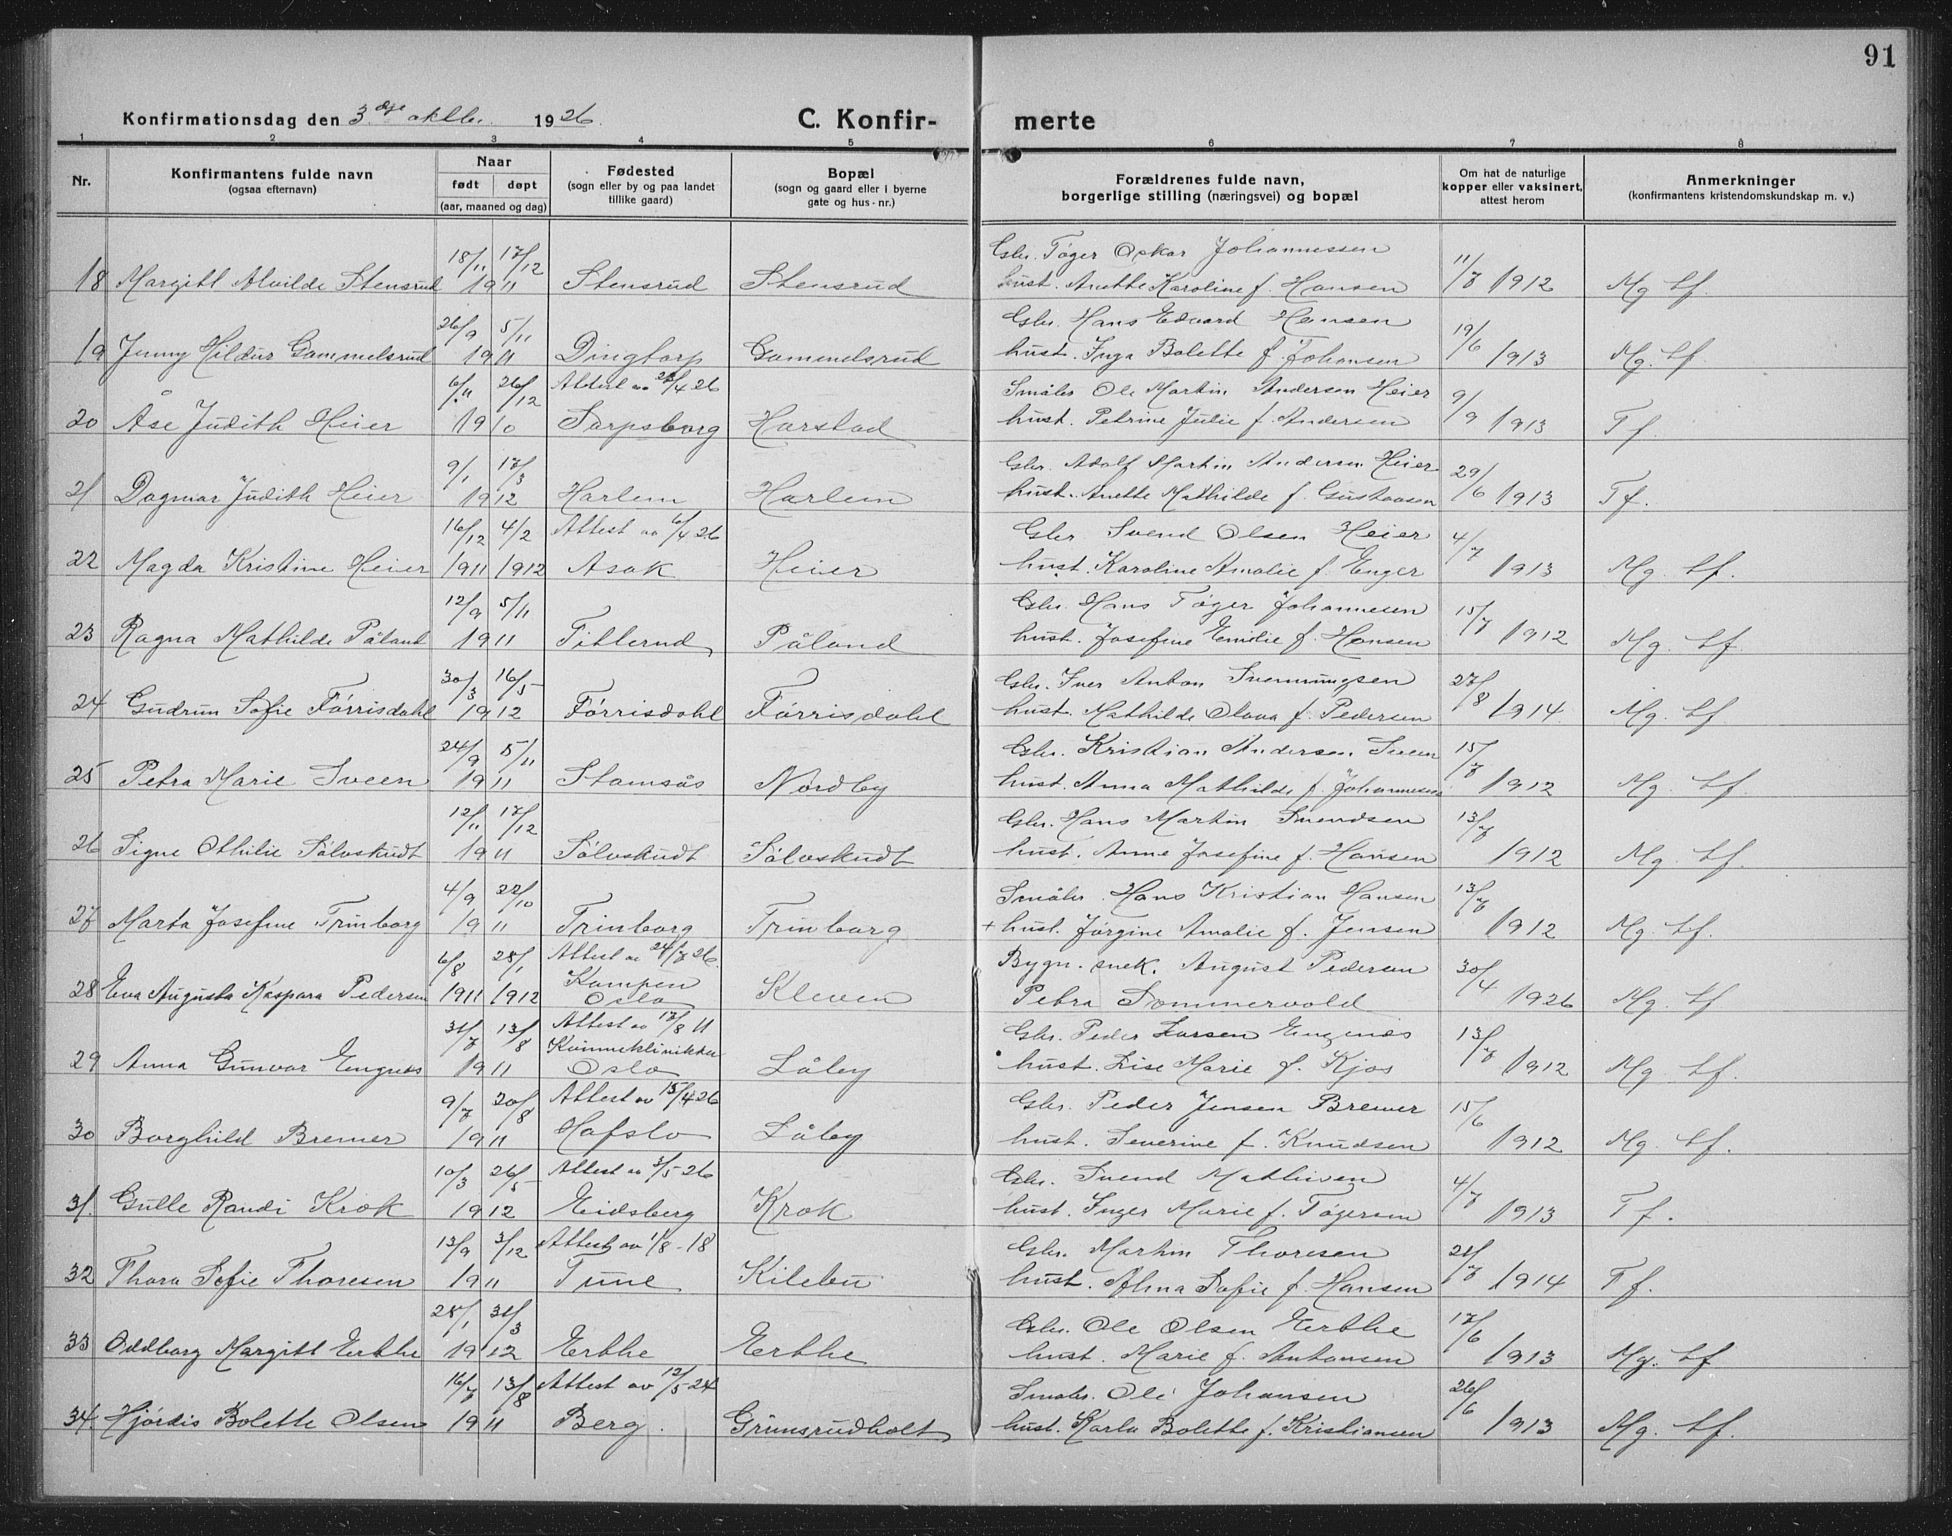 91
Konfirmationsdag den 3dje oktbr. 1926. C. Konfirmerte
1 2 3 4 5 6 7 8
Nr. Konfirmantens fulde navn (ogsaa efternavn) Naar født døpt (aar, maaned og dag) Fødested (sogn eller by og paa landet tillike gaard) Bopæl (sogn og gaard eller i byerne gate og hus-nr.) Forældrenes fulde navn, borgerlige stilling (næringsvei) og bopæl Om hat de naturlige kopper eller vaksinert, attest herom Anmerkninger (konfirmantens kristendomskundskap m. v.)
18/11 17/12 Gbr. Tøger Oskar Johannessen
18 Margitt Alvilde Stensrud 1911 Stensrud Stensrud hust. Anette Karoline f. Hansen 11/7 1912 Mg. tf.
26/9 5/11 Gbr. Hans Edvard Hansen
19 Jenny Hildur Gammelsrud 1911 Dingtorp Gammelsrud hust. Inga Bolette f. Johansen 19/6 1913 Mg. tf.
6/11 26/12 Attest av 28/4 26 Småbr. Ole Martin Andersen Heier
20 Åse Judith Heier 1910 Sarpsborg Harstad hust. Petrine Julie f. Andersen 9/9 1913 Tf.
9/1 17/3 Gbr. Adolf Martin Andersen Heier
21 Dagmar Judith Heier 1912 Harlem Harlem hust. Anette Mathilde f. Gustavsen 29/6 1913 Tf.
16/12 4/2 Attest av 6/4 26 Gbr. Svend Olsen Heier
22 Magda Kristine Heier 1911 1912 Asak Heier hust. Karoline Amalie f. Enger 4/7 1913 Mg. tf.
12/9 5/11 Gbr. Hans Tøger Johannesen
23 Ragna Mathilde Påland 1911 Titterud Påland hust. Josefine Emilie f. Hansen 15/7 1912 Mg. tf.
30/3 16/5 Gbr. Iver Anton Svenningsen
24 Gudrun Sofie Førrisdahl 1912 Førrisdahl Førrisdahl hust. Mathilde Olava f. Pedersen 27/8 1914 Mg. tf
24/9 5/11 Gbr. Kristian Andersen Sveen
25 Petra Marie Sveen 1911 Stamsås Nordby hust. Anna Mathilde f. Johannesen 15/7 1912 Mg. tf
12/11 17/12 Gbr. Hans Martin Svendsen
26 Signe Othilie Sølvskudt 1911 Sølvskudt Sølvskudt hust. Anne Josefine f. Hansen 13/7 1912 Mg. tf.
4/9 22/10 Småbr. Hans Kristian Hansen
27 Marta Josefine Trinborg 1911 Trinborg Trinborg + hust. Jørgine Amalie f. Jensen 13/7 1912 Mg. tf.
6/8 28/1 Attest av 24/7 26. Bygn. snek. August Pedersen
28 Eva Augusta Kaspara Pedersen 1911 1912 Kampen Oslo Kleven Petra Sommervold 30/4 1926 Mg. tf
31/7 13/8 Attest av 17/8 11 Gbr. Peder Larsen Engenæs
29 Anna Gunvor Engnæs 1911 Kvinneklinikken Oslo Låby hust. Lise Marie f. Kjos 13/7 1912 Mg. tf.
9/7 20/8 Attest av 15/4 26 Gbr. Peder Jensen Bremer
30 Borghild Bremer 1911 Hafslo Låby hust. Severine f. Knudsen 15/6 1912 Mg. tf.
10/3 26/5 Attest av 3/5-26 Gbr. Svend Mathisen
31. Gulle Randi Krok 1912 Eidsberg Krok hust. Inger Marie f. Tøgersen 4/7 1913 Tf.
13/9 3/12 Attest av 1/8-18 Gbr. Martin Thoresen
32 Thora Sofie Thoresen 1911 Tune Kilebu hust. Alma Sofie f. Hansen 21/7 1914 Tf.
28/1 31/3 Gbr. Ole Olsen Erthe
33 Oddborg Margitt Erthe 1912 Erthe Erthe hust. Marie f. Antonsen 17/6 1913 Mg. tf
16/7 13/8 Attest av 12/5-24 Småbr. Ole Johansen
34. Hjørdis Bolette Olsen 1911 Berg. Grimsrudholt hust. Karla Bolette f. Kristiansen 26/6 1913 Mg. tf.